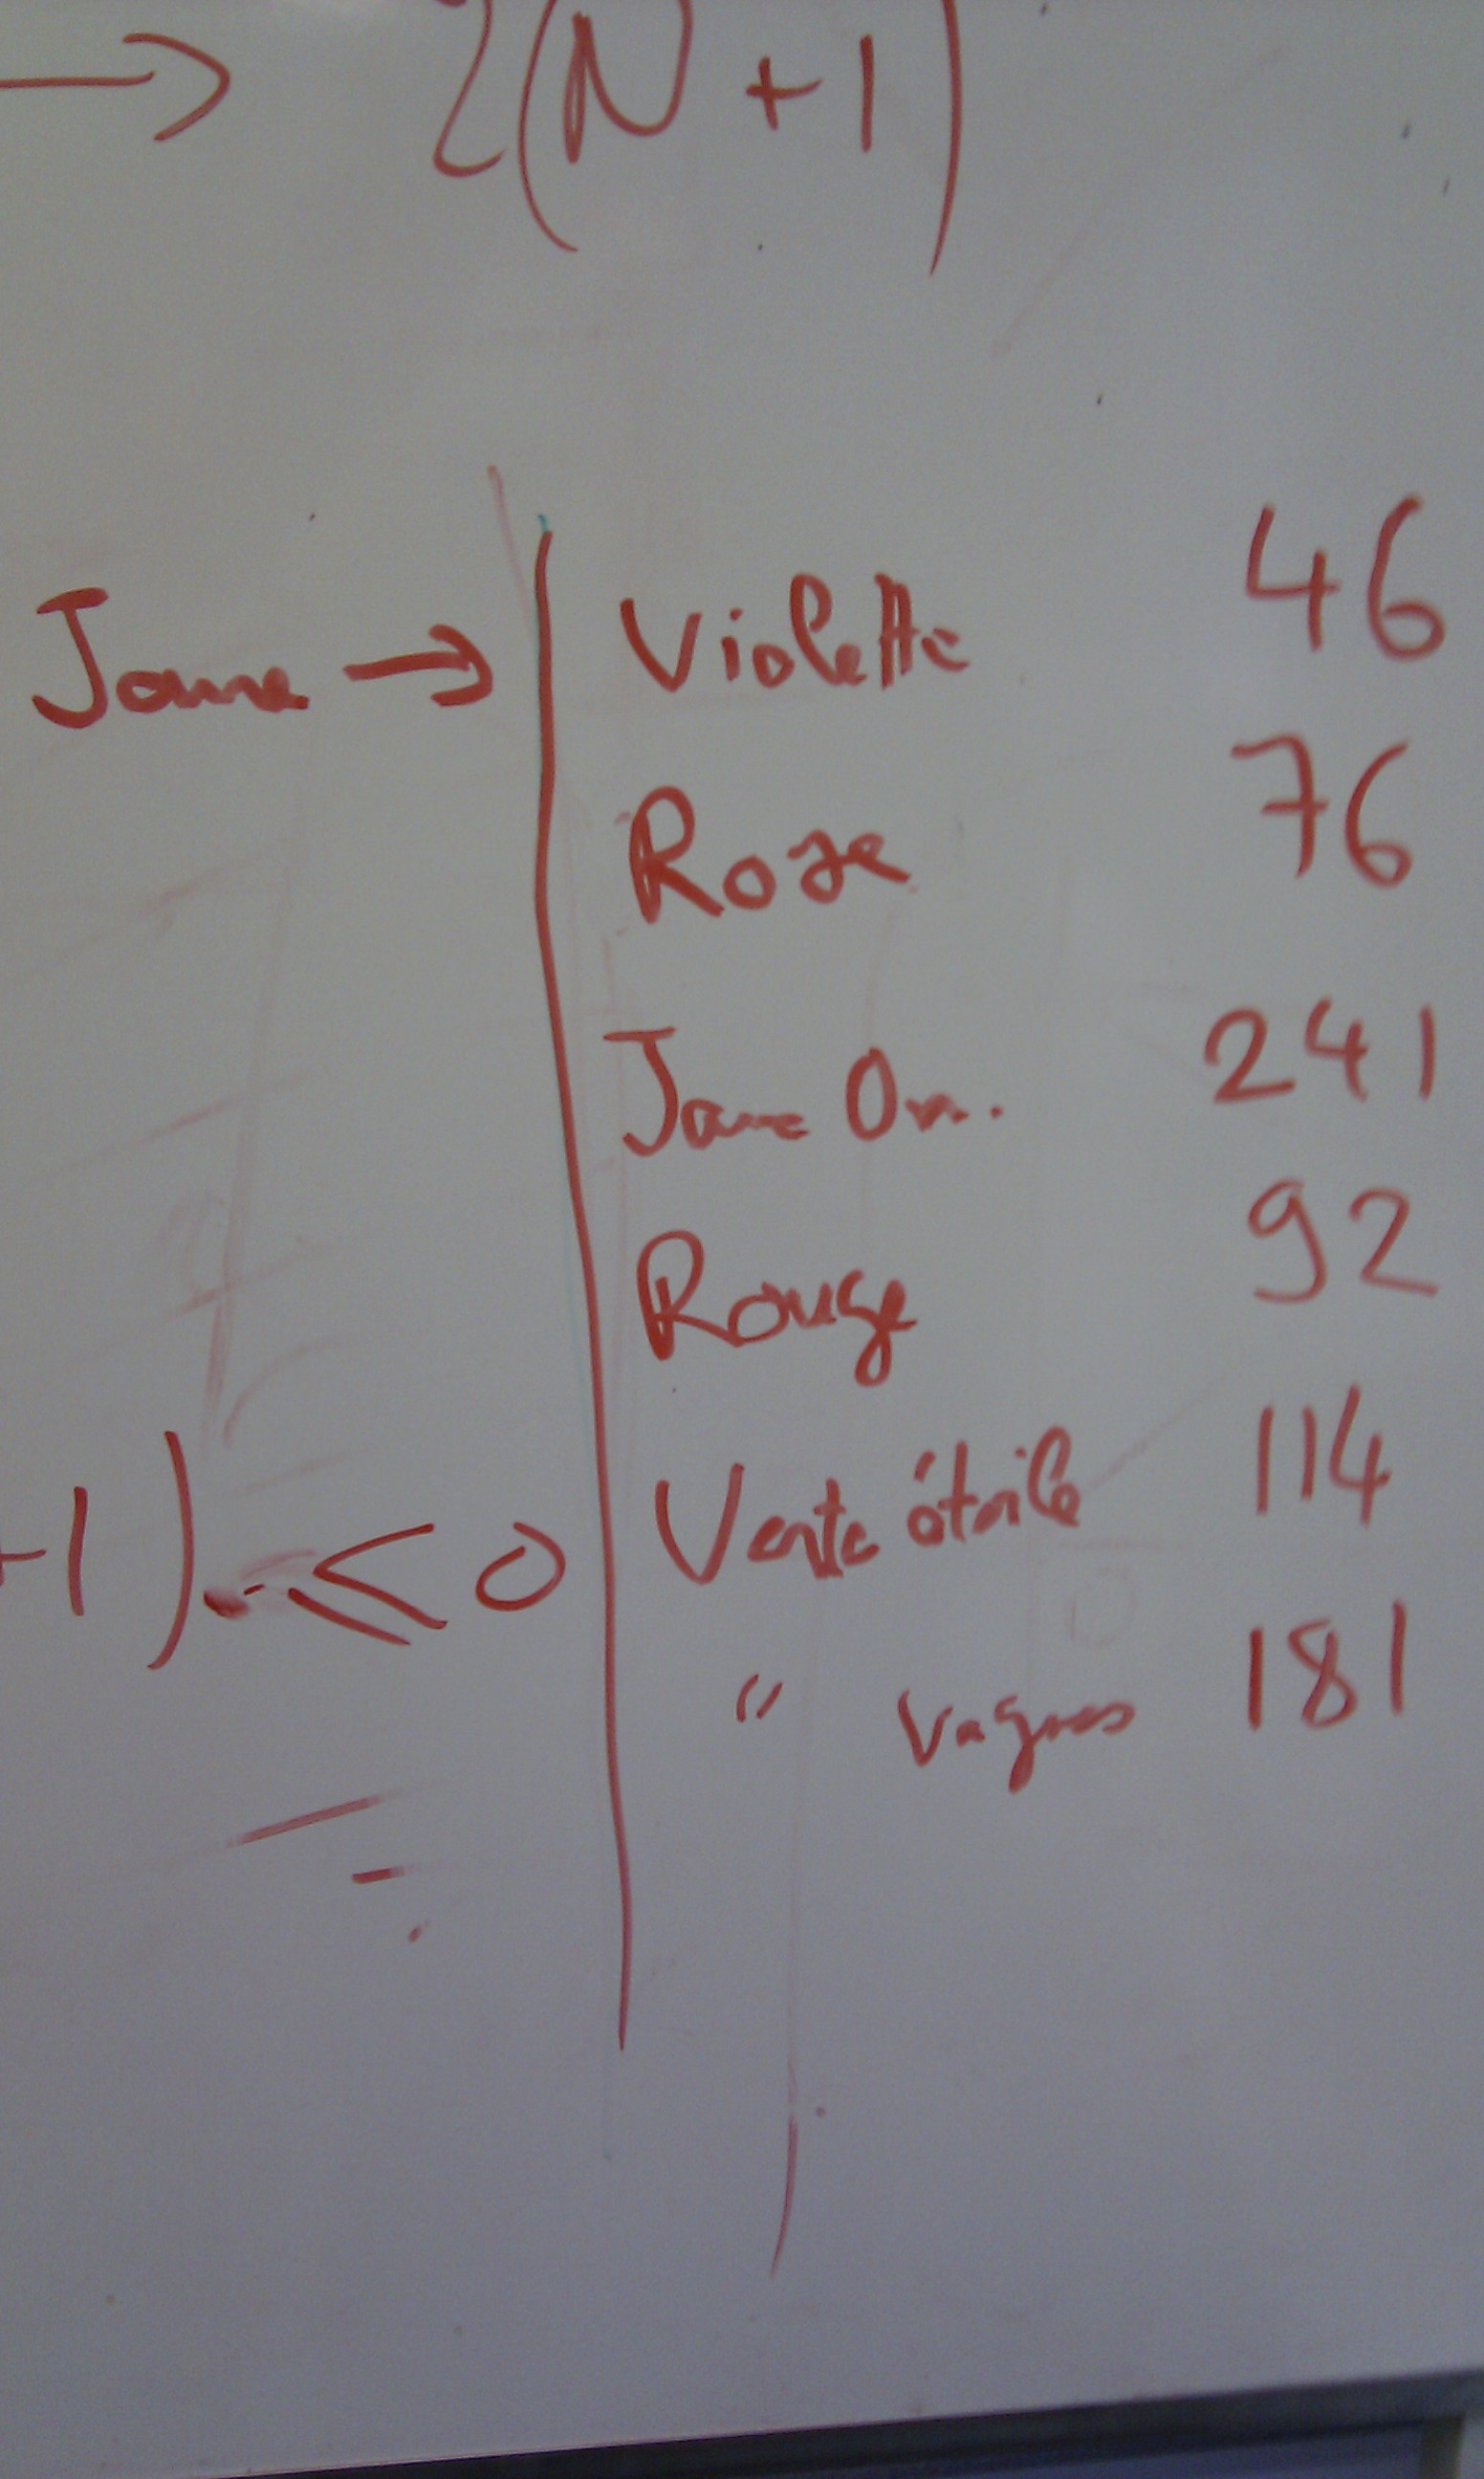 → 2(N+1)
Jaune → Violette 46
Rose 76
Jaune Or. 241
Rouge 92
Verte étoile 114
+1) ≤ 0
" vagues 181